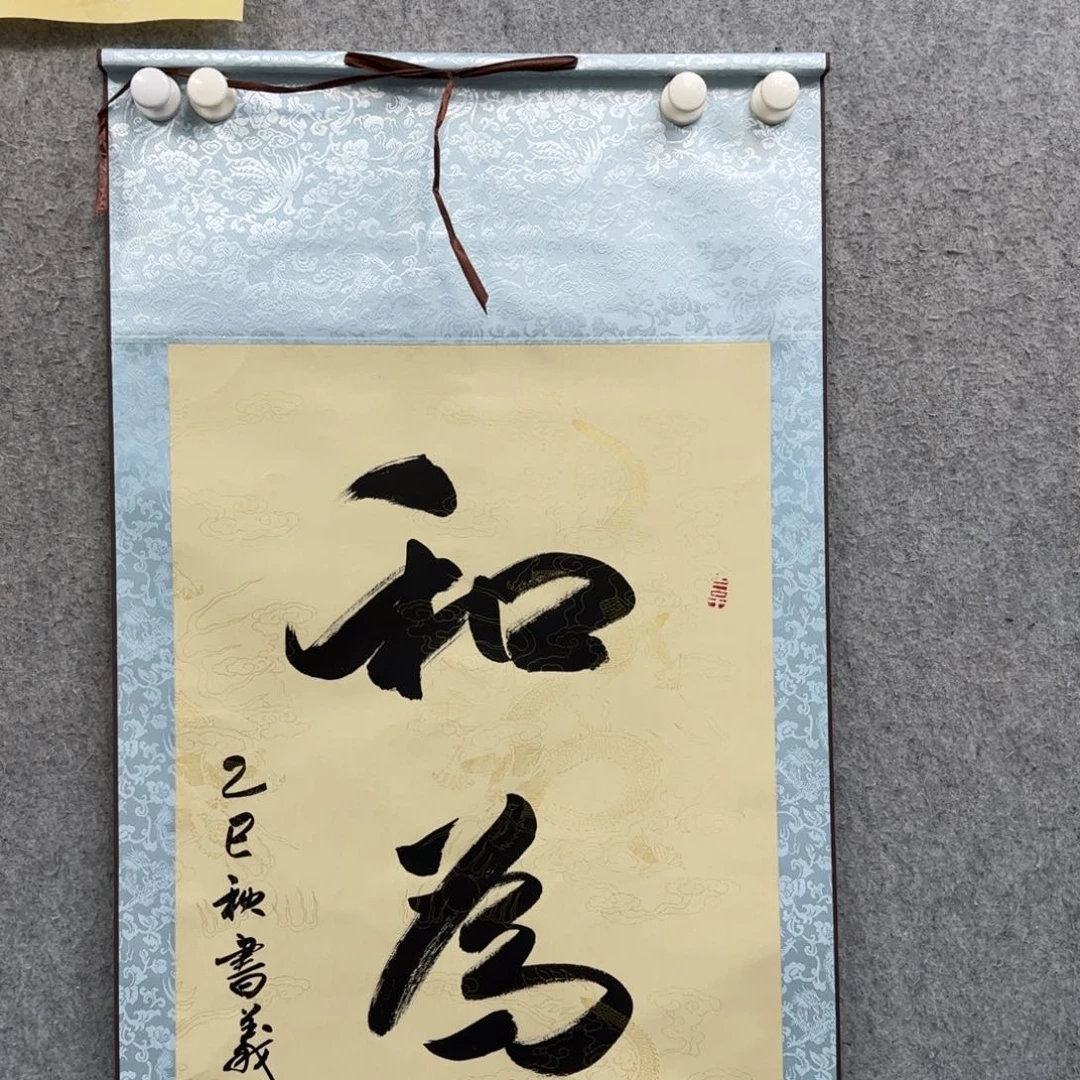 和為
乙巳秋書義